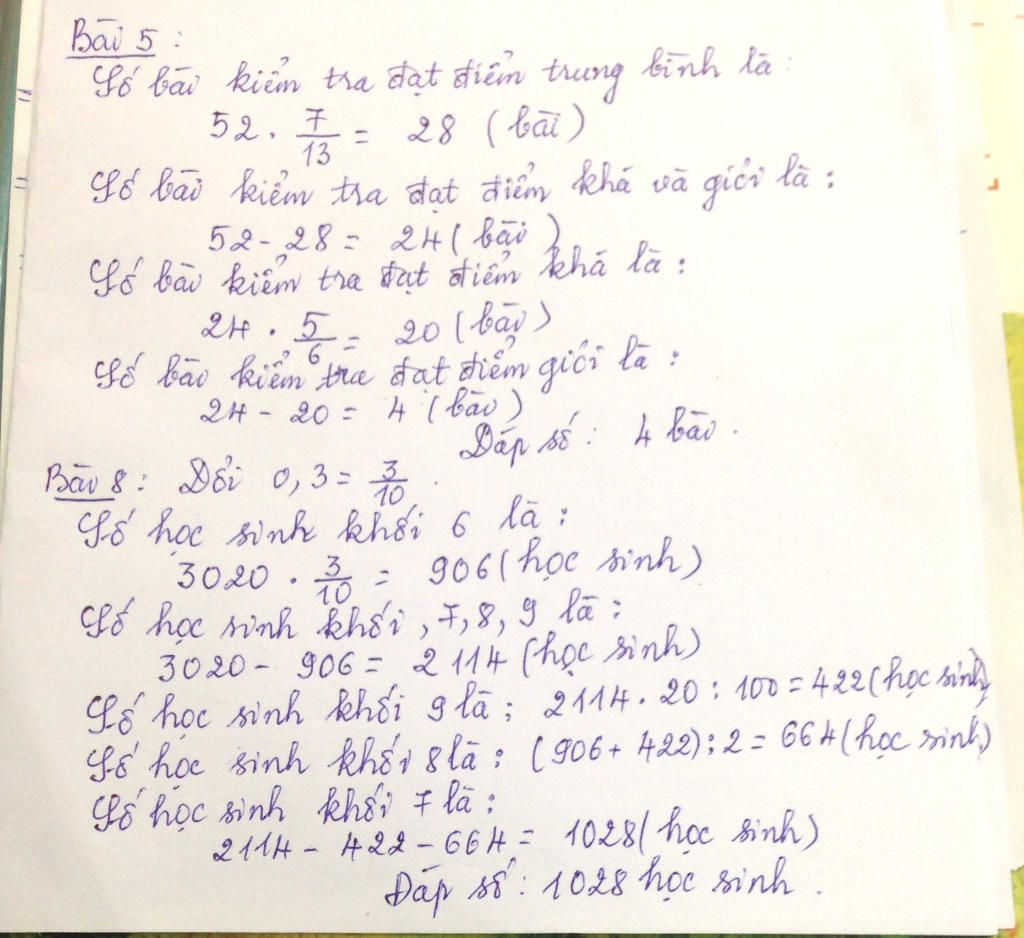 Bài 5 :
Số bài kiểm tra đạt điểm trung bình là :
52 . 7/13 = 28 (bài)
Số bài kiểm tra đạt điểm khá và giỏi là :
52 - 28 = 24 (bài)
Số bài kiểm tra đạt điểm khá là :
24 . 5/6 = 20 (bài)
Số bài kiểm tra đạt điểm giỏi là :
24 - 20 = 4 (bài)
Đáp số : 4 bài .
Bài 8 : Đổi 0,3 = 3/10 .
Số học sinh khối 6 là :
3020 . 3/10 = 906 (học sinh)
Số học sinh khối , 7, 8, 9 là :
3020 - 906 = 2114 (học sinh)
Số học sinh khối 9 là : 2114 . 20 : 100 = 422 (học sinh)
Số học sinh khối 8 là : (906 + 422) : 2 = 664 (học sinh)
Số học sinh khối 7 là :
2114 - 422 - 664 = 1028 (học sinh)
Đáp số : 1028 học sinh .